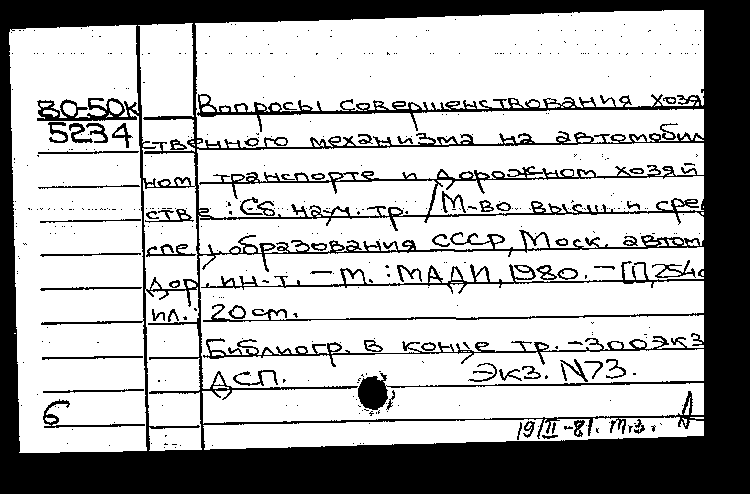 80-50к
5234
Вопросы совершенствования хозяй
ственного механизма на автомобил
ном транспорте и дорожном хозяй
стве : Сб. науч. тр. / М-во высш. и сред
спец. образования СССР, Моск. автом
дор. ин-т. - М. : МАДИ, 1980. - [1], 254с
ил. ; 20 см.
Библиогр. в конце тр. - 300 экз
ДСП. Экз. N73.
6
19/II-81. т.з.